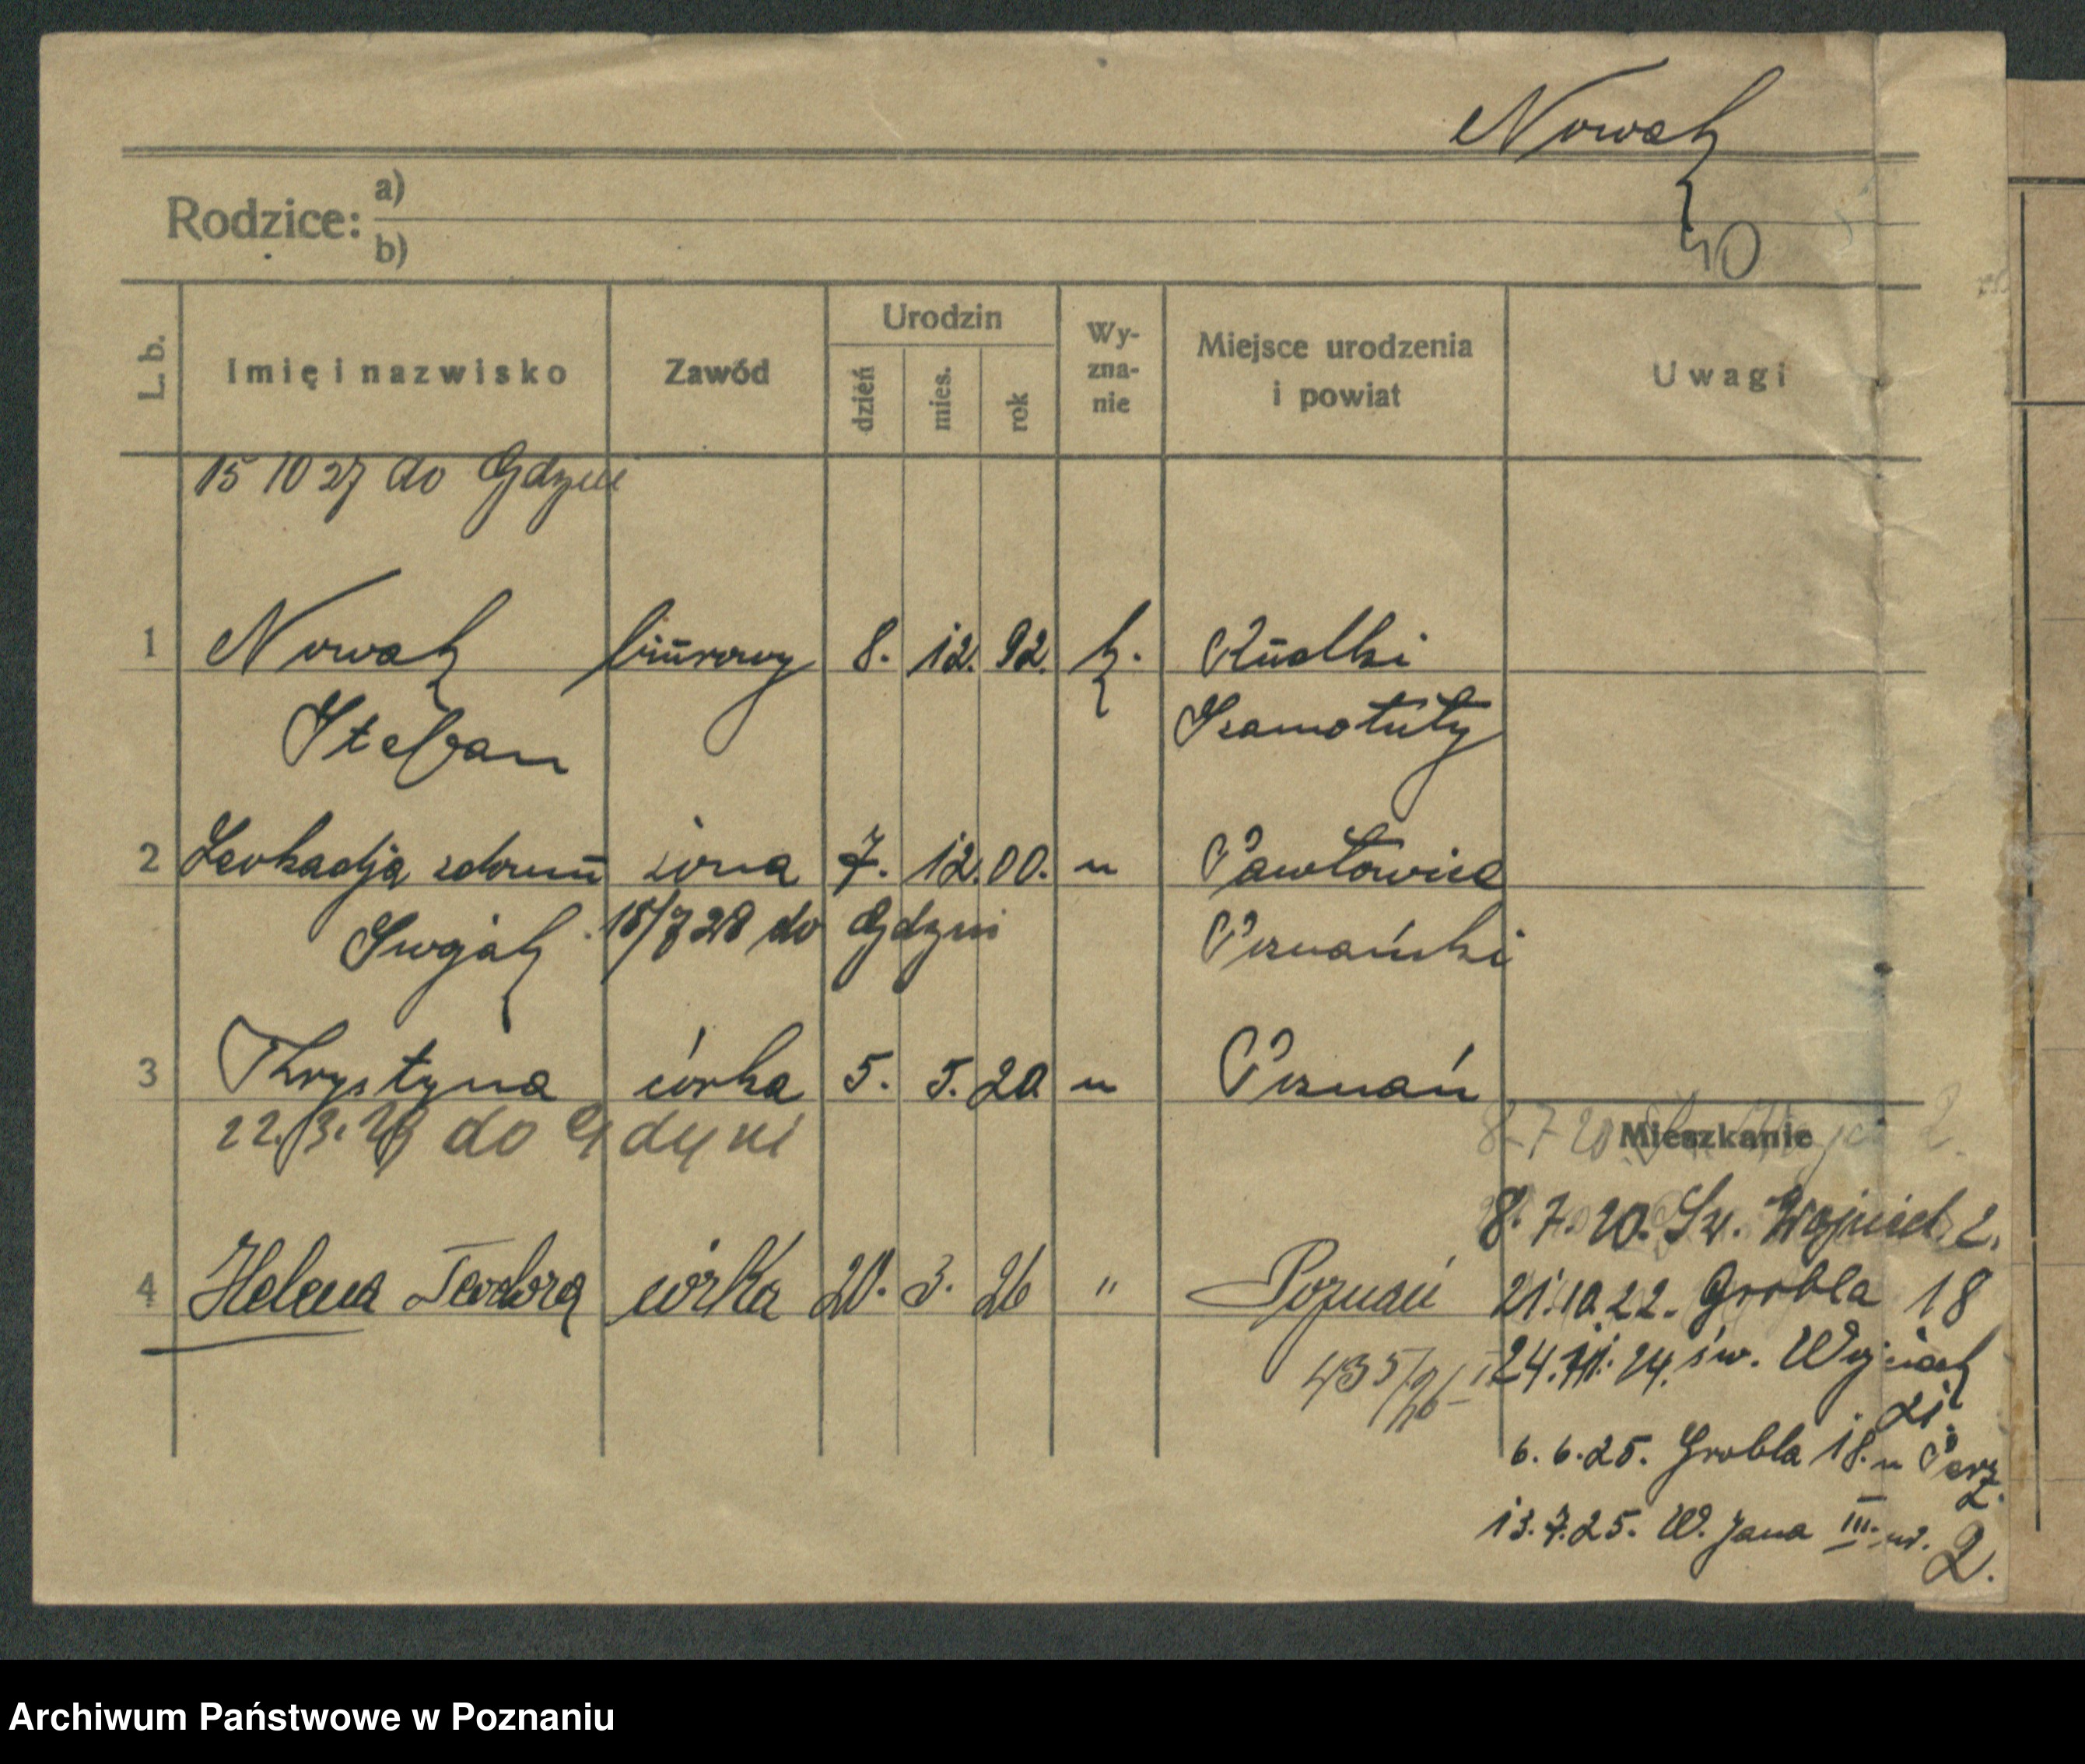 Nowak
40
Rodzice: a)
b)
L. b. Imię i nazwisko Zawód Urodzin dzień mies. rok Wy-zna-nie Miejsce urodzenia i powiat Uwagi
15 10 27 do Gdyni
1 Nowak biurowy 8. 12. 92. k. Rudki
Stefan Szamotuły
2 Leokadja zdomu żona 7. 12. 00. " Pawłowice
Swojak 18/7 28 do Gdyni Poznański
3 Krystyna córka 5. 5. 20 " Poznań
22.3.29 do Gdyni
Mieszkanie
8. 7. 20. Św. Wojciech 2.
4 Helena Teodora córka 20. 3. 26 " Poznań
21.10.22. Grobla 18
435/26
24. 24. św. Wojciech
21.
6. 6. 25. Grobla 18. u
13. 7. 25. W. Jana III.
2.
Archiwum Państwowe w Poznaniu